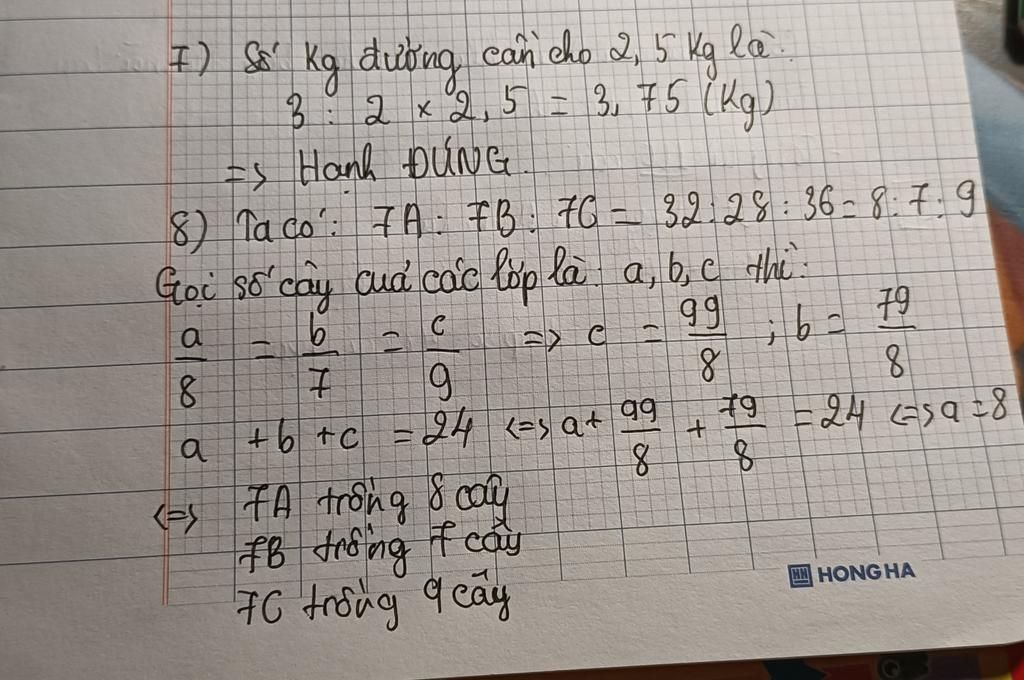 7) Số kg đường cần cho 2,5 kg là:
3 : 2 × 2,5 = 3,75 (kg)
=> Hạnh ĐÚNG.
8) Ta có: 7A : 7B : 7C = 32 : 28 : 36 = 8 : 7 : 9
Gọi số cây của các lớp là: a, b, c thì:
a/8 = b/7 = c/9 => c = 9a/8 ; b = 7a/8
a + b + c = 24 <=> a + 9a/8 + 7a/8 = 24 <=> a = 8
<=> 7A trồng 8 cây
7B trồng 7 cây
7C trồng 9 cây
HH HONG HA